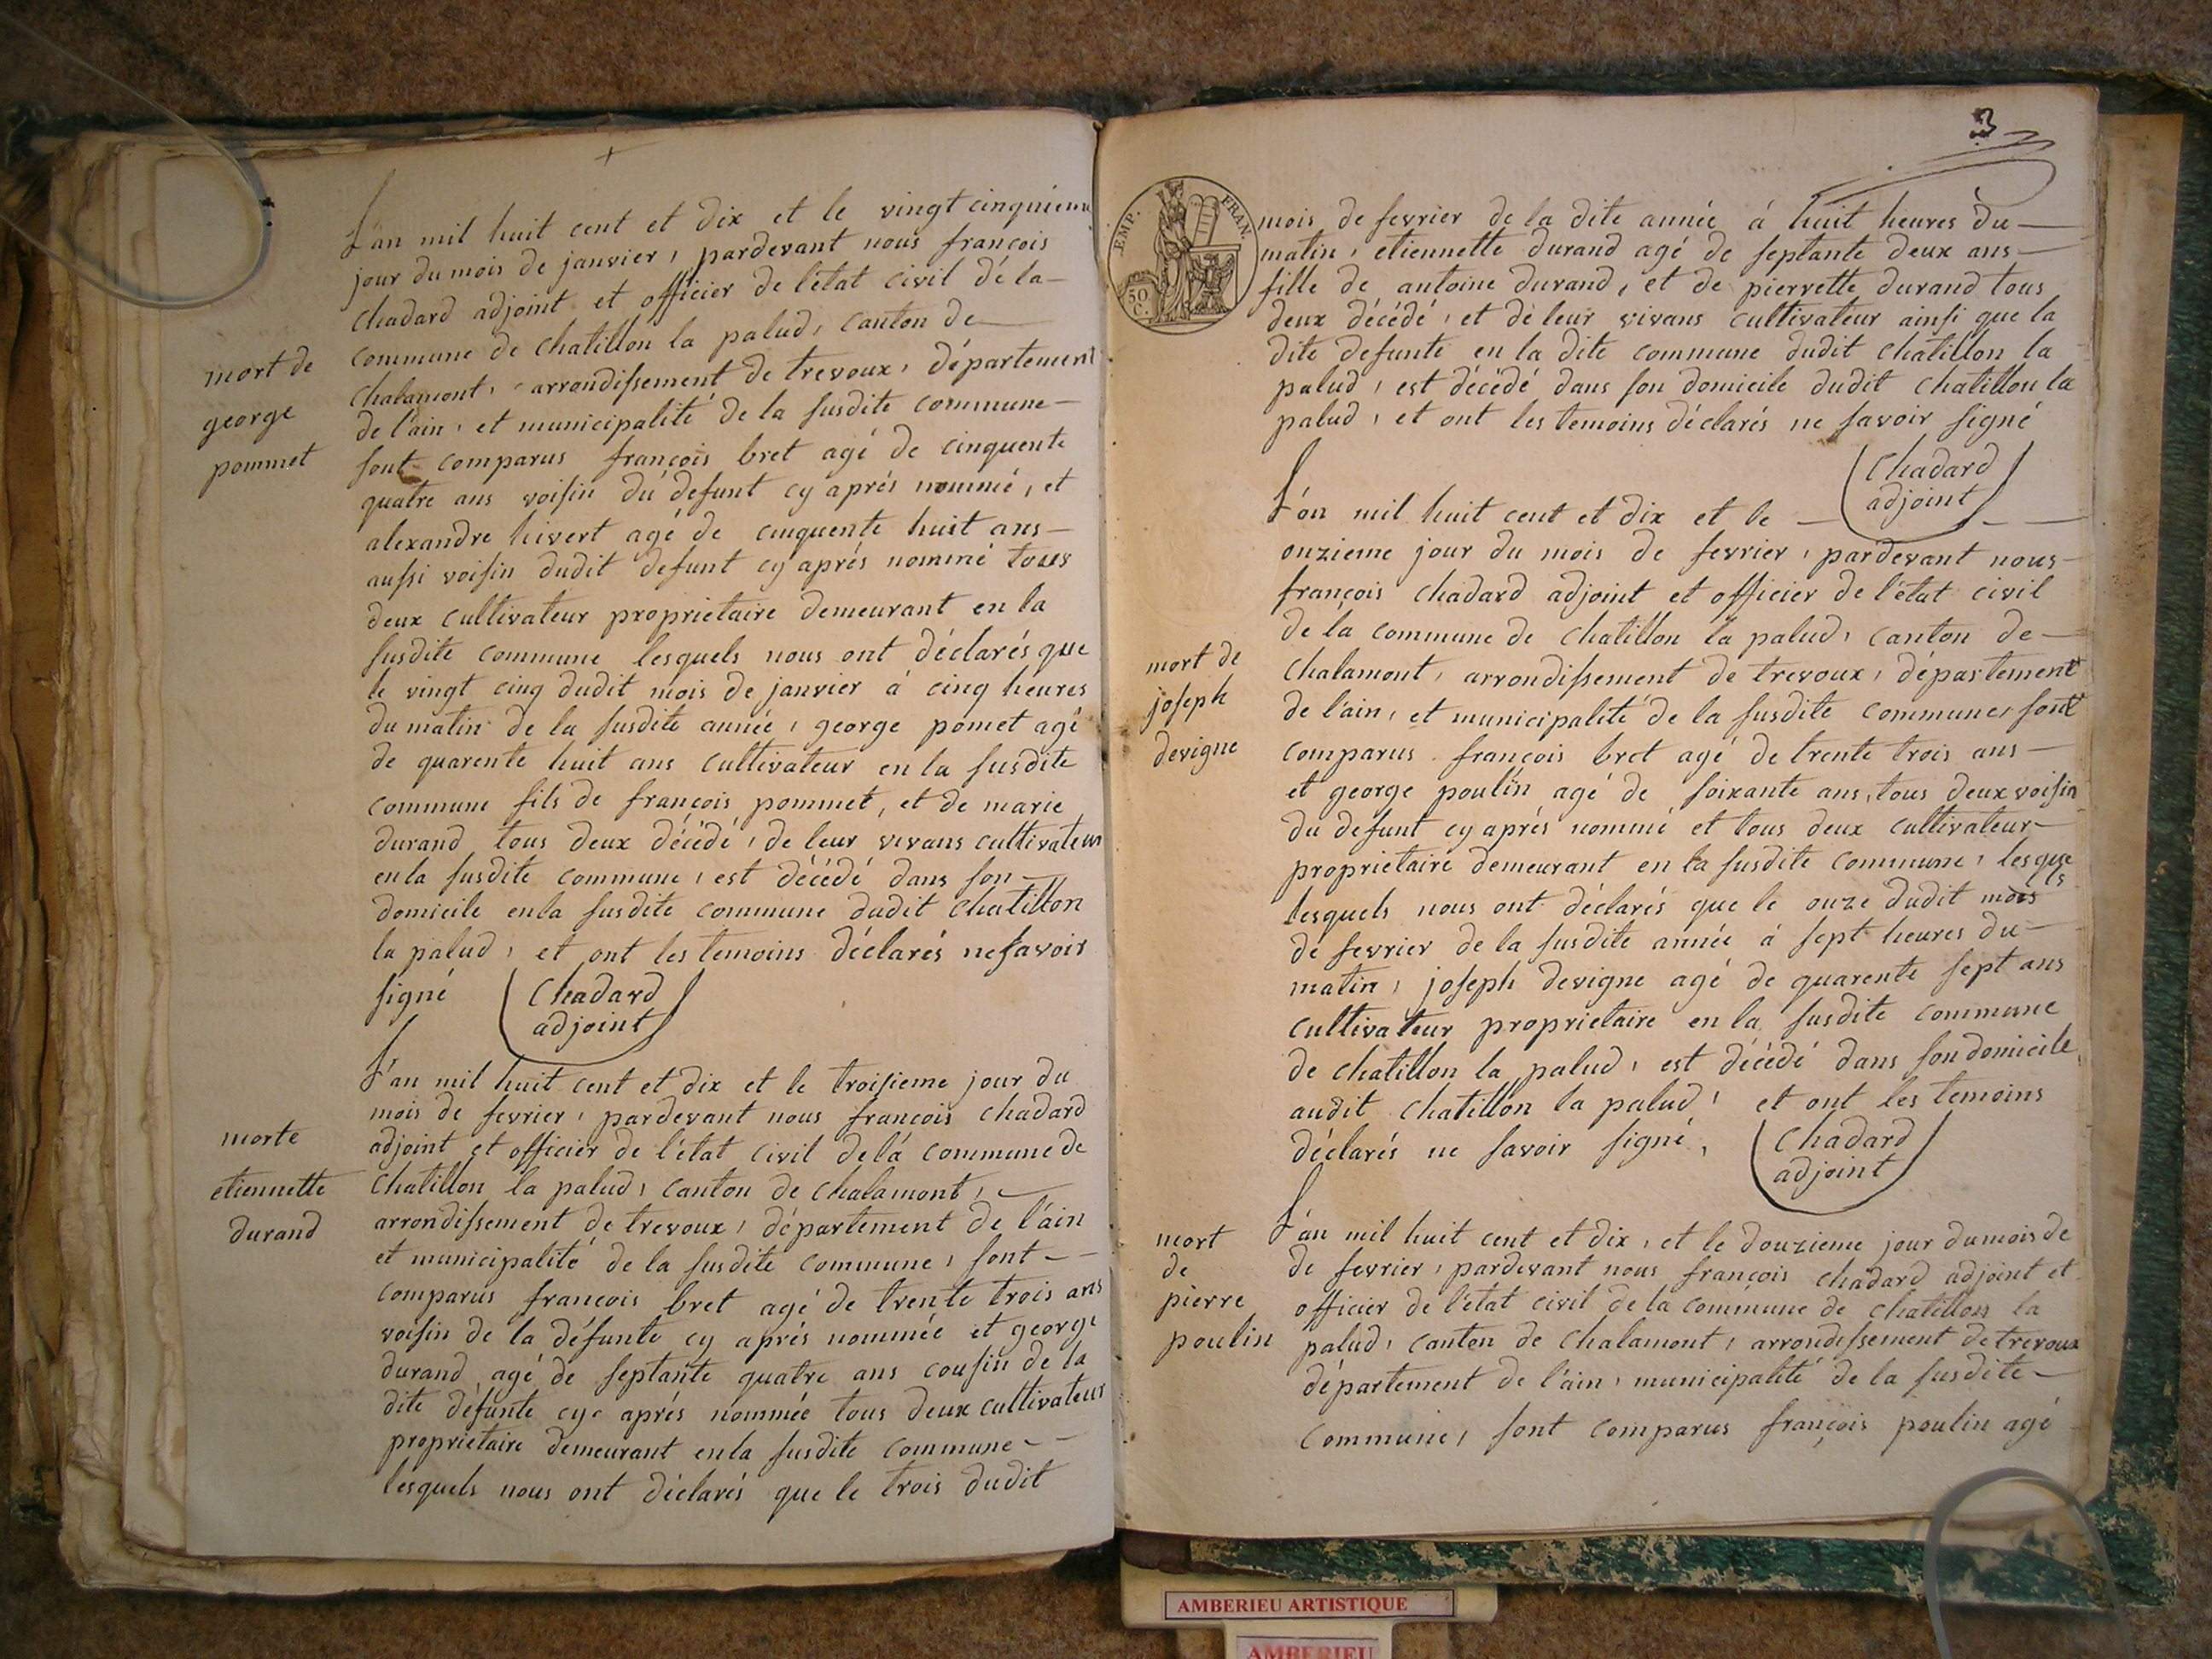 L'an mil huit cent et dix et le vingt cinquieme
jour du mois de janvier, pardevant nous françois
chadard adjoint et officier de l'état civil dé la
commune de chatillon la palud, canton de
mort de
chalamont, arrondissement de trevoux, département
george
de l'ain, et municipalité de la susdite commune
pommet
sont comparus françois bret agé de cinquente
quatre ans voisin du defunt cy aprés nommé, et
alexandre hivert agé de cinquente huit ans
aussi voisin dudit defunt cy aprés nommé tous
deux cultivateur proprietaire demeurant en la
susdite commune lesquels nous ont déclarés que
le vingt cinq dudit mois de janvier á cinq heures
du matin de la susdite année, george pomet agé
de quarente huit ans cultivateur en la susdite
commune fils de françois pommet, et de marie
durand tous deux décédé, de leur vivans cultivateur
en la susdite commune, est décédé dans son
domicile en la susdite commune dudit chatillon
la palud, et ont les temoins déclarés ne savoir
signé
Chadard
adjoint
L'an mil huit cent et dix et le troisieme jour du
mois de fevrier, pardevant nous françois chadard
morte
adjoint et officier de l'état civil de la commune de
etiennette
chatillon la palud, canton de chalamont,
durand
arrondissement de trevoux, département de l'ain
et municipalité de la susdite commune, sont
comparus françois bret agé de trente trois ans
voisin de la défunte cy aprés nommée et george
durand agé de septante quatre ans cousin de la
dite défunte cy aprés nommée tous deux cultivateur
proprietaire demeurant en la susdite commune
lesquels nous ont déclarés que le trois dudit
3
EMP. FRAN.
50 C.
mois de fevrier de la dite année á huit heures du
matin, etiennette durand agé de septante deux ans
fille de antoine durand, et de pierrette durand tous
deux décédé, et dé leur vivans cultivateur ainsi que la
dite defunte en la dite commune dudit chatillon la
palud, est décédé dans son domicile dudit chatillon la
palud, et ont les temoins déclarés ne savoir signé
Chadard
adjoint
L'an mil huit cent et dix et le
onzieme jour du mois de fevrier, pardevant nous
françois chadard adjoint et officier de l'état civil
de la commune de chatillon la palud, canton de
mort de
chalamont, arrondissement de trevoux, département
joseph
de l'ain, et municipalité de la susdite commune, sont
devigne
comparus françois bret agé de trente trois ans
et george poulin agé de soixante ans, tous deux voisin
du défunt cy aprés nommé et tous deux cultivateur
proprietaire demeurant en la susdite commune, lesquels
lesquels nous ont déclarés que le onze dudit mois
de fevrier de la susdite année á sept heures du
matin, joseph devigne agé de quarente sept ans
cultivateur proprietaire en la susdite commune
de chatillon la palud, est décédé dans son domicile
audit chatillon la palud, et ont les temoins
déclarés ne savoir signé,
Chadard
adjoint
L'an mil huit cent et dix, et le douzieme jour du mois de
mort
de
de fevrier, pardevant nous françois chadard adjoint et
pierre
officier de l'état civil de la commune de chatillon la
poulin
palud, canton de chalamont, arrondissement de trevoux
département de l'ain, municipalité de la susdite
commune, sont comparus françois poulin agé
AMBERIEU ARTISTIQUE
AMBERIEU